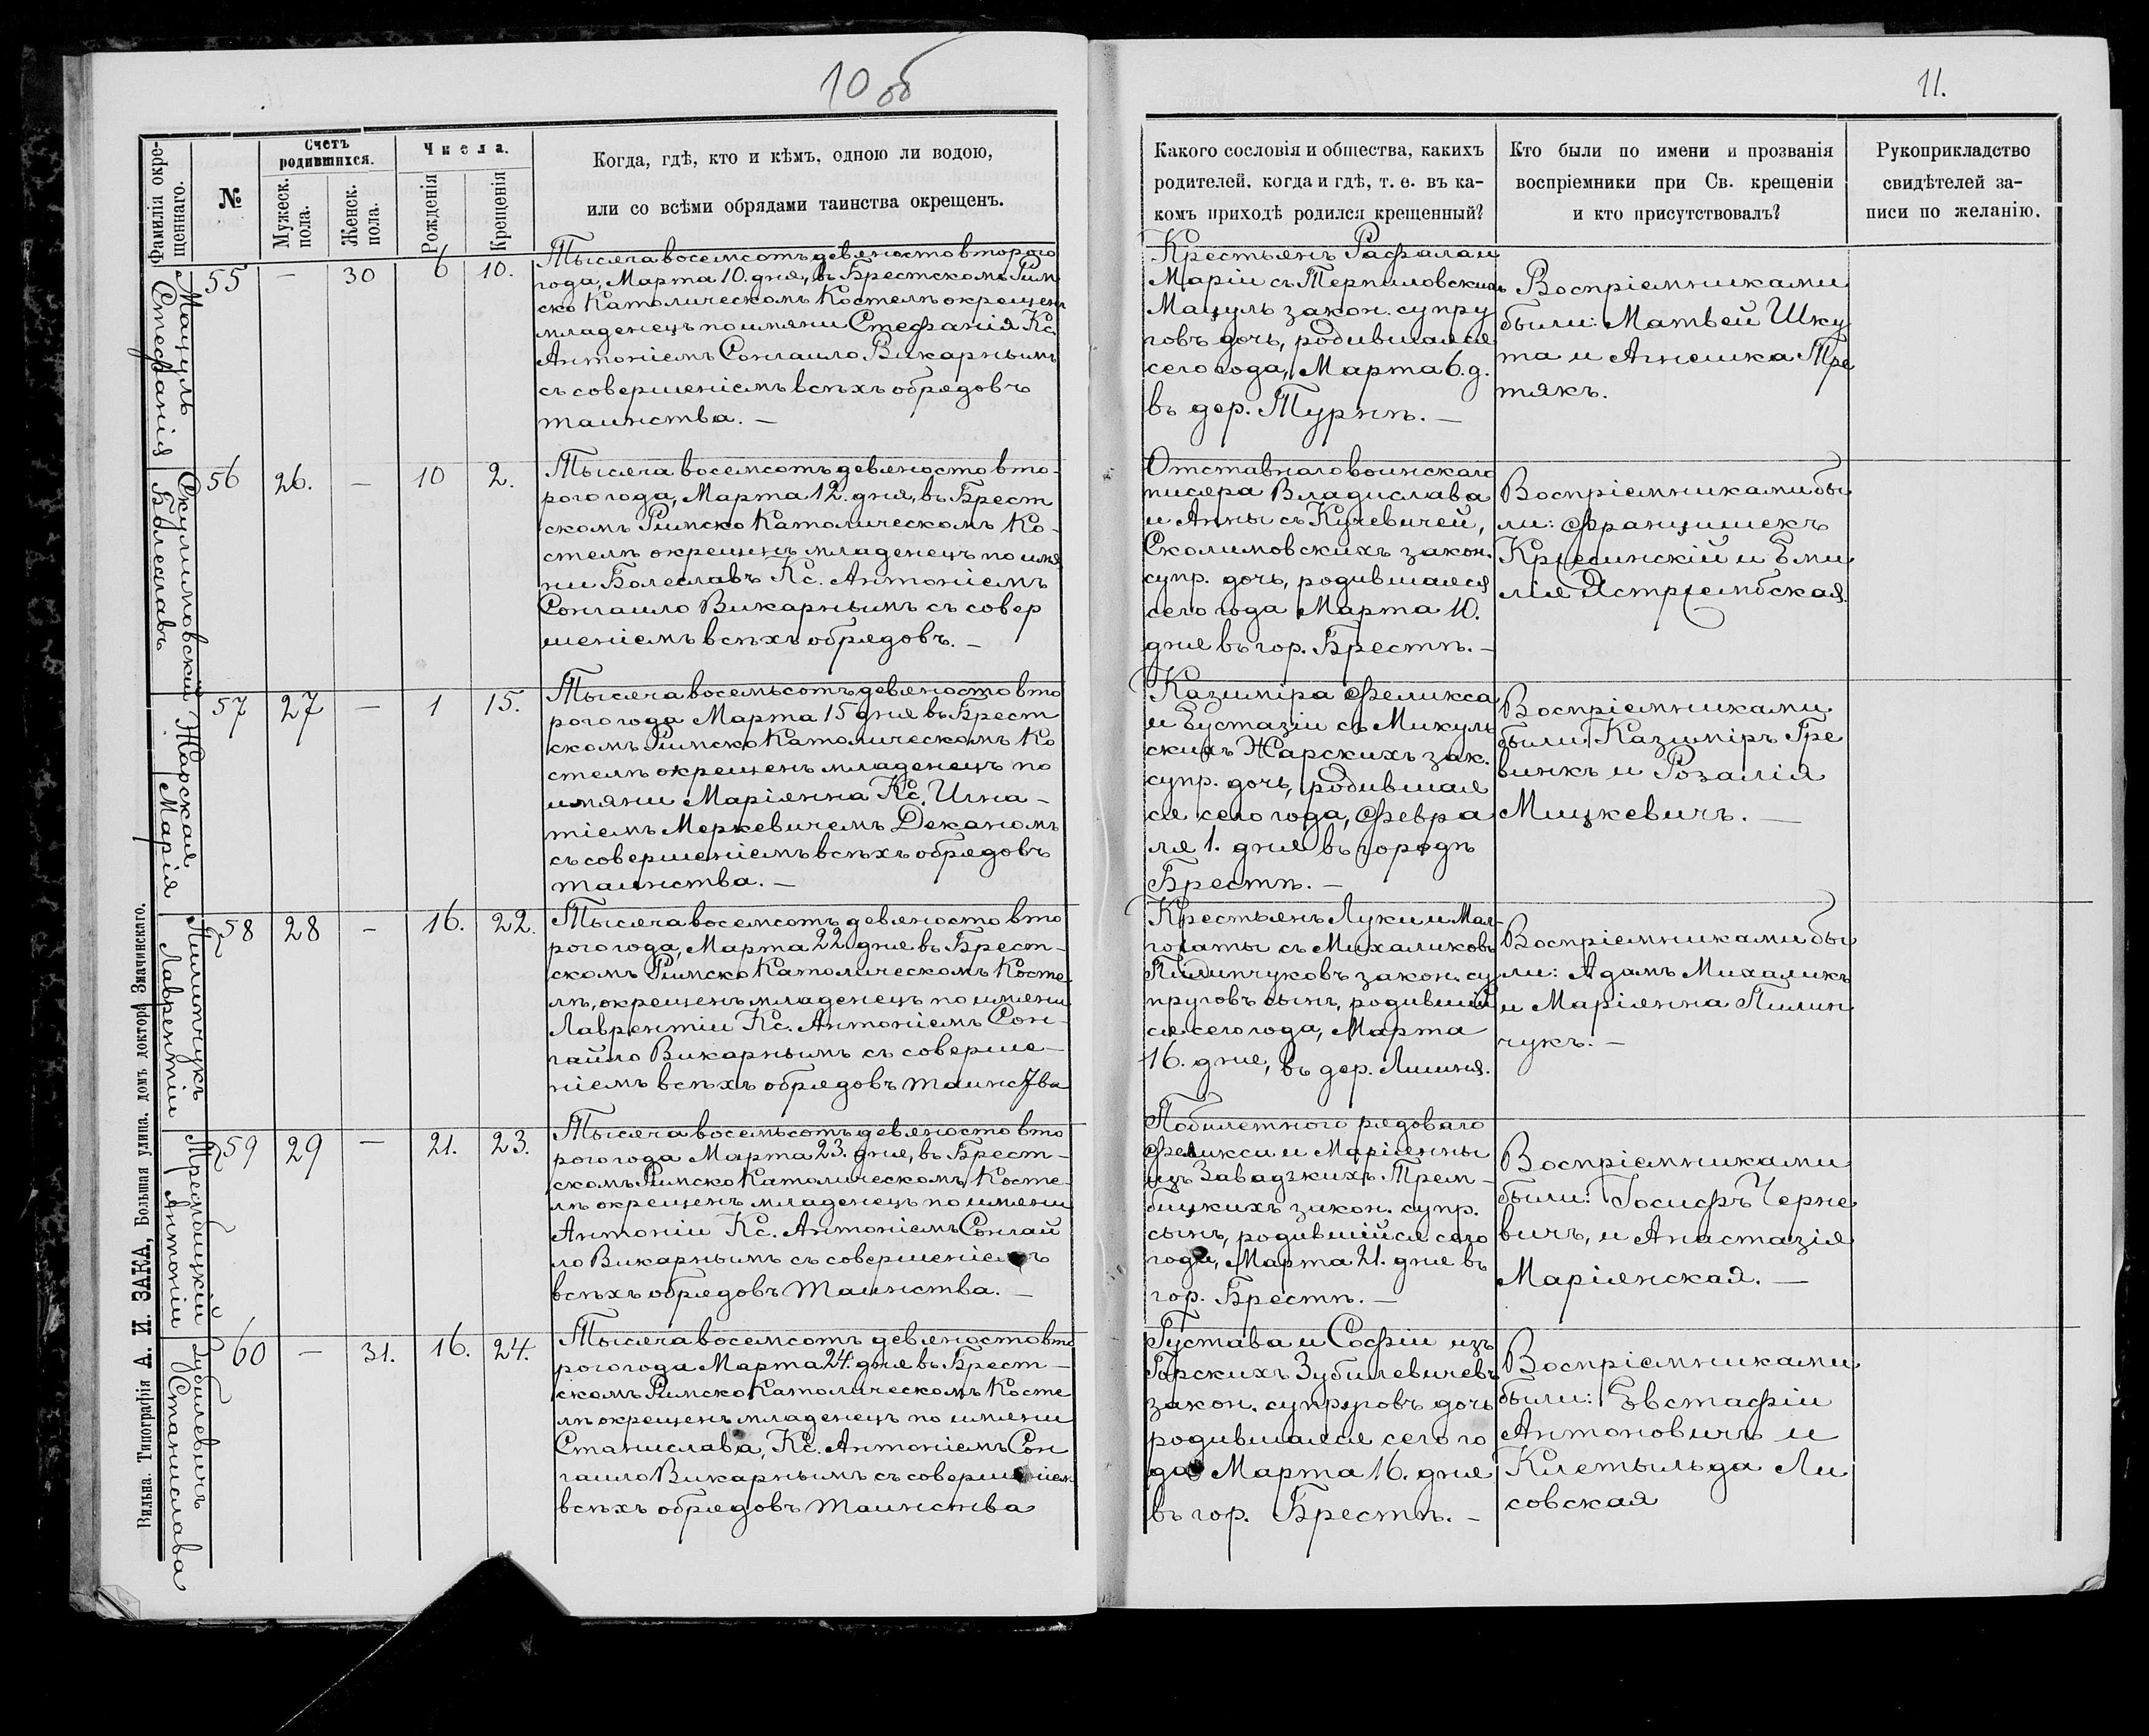 10 об
11.
Фамилія окрещеннаго.
№
Счетъ родившихся.
Мужеск. пола.
Женск. пола.
Числа.
Рожденія
Крещенія
Когда, гдѣ, кто и кѣмъ, одною ли водою,
или со всѣми обрядами таинства окрещенъ.
Какого сословія и общества, какихъ
родителей, когда и гдѣ, т. е. въ ка-
комъ приходѣ родился крещенный?
Кто были по имени и прозванія
воспріемники при Св. крещеніи
и кто присутствовалъ?
Рукоприкладство
свидѣтелей за-
писи по желанію.
Мацуль
Стефанія
55 — 30 6 10.
Тысяча восемсотъ девяносто второго
года, Марта 10. дня, въ Брестскомъ Рим
ско Католическомъ Костелѣ окрещенъ
младенецъ по имяни Стефанія Кс.
Антоніемъ Сонгаило Викарнымъ
съ совершеніемъ всѣхъ обрядовъ
таинства. —
Крестьянъ Рафала и
Маріи съ Терпиловскихъ
Мацуль закон. супру
говъ дочь, родившаяся
сего года, Марта 6. д.
въ дер. Турнѣ. —
Воспріемниками
были: Матвей Шку
та и Агнешка Тре
тякъ.
Скулимовскій
Болеславъ
56 26. — 10 2.
Тысяча восемсотъ девяносто вто-
рого года, Марта 12. дня, въ Брест
скомъ Римско Католическомъ Ко-
стелѣ окрещенъ младенецъ по имя
ни Болеславъ Кс. Антоніемъ
Сонгаило Викарнымъ съ совер
шеніемъ всѣхъ обрядовъ. —
Отставнаго воинскаго
писяра Владислава
и Анны съ Кучевичей,
Сколимовскихъ закон.
супр. дочь, родившаяся
сего года Марта 10.
дня въ гор. Брестѣ. —
Воспріемниками бы
ли: Францишекъ
Кржесинскій и Еми
лія Ястржембская.
Жарская
Марія
57 27 — 1 15.
Тысяча восемьсотъ девяносто вто
рого года Марта 15 дня въ Брест
скомъ Римско Католическомъ Ко
стелѣ окрещенъ младенецъ по
имяни Маріянна Кс. Игна-
тіемъ Меркевичемъ Деканомъ
съ совершеніемъ всѣхъ обрядовъ
таинства. —
Казиміра Феликса
и Еустазіи съ Микуль
скихъ Жарскихъ зак.
супр. дочь, родившая
ся сего года, Февра
ля 1. дня въ городѣ
Брестѣ. —
Воспріемниками
были Казиміръ Гре
винкъ и Розалія
Мицкевичъ. —
Пилипчукъ
Лаврентіи
58 28 - 16. 22.
Тысяча восемсотъ девяносто вто
рого года, Марта 22 дня въ Брест-
скомъ Римско Католическомъ Косте
лѣ, окрещенъ младенецъ по имяни
Лаврентіи Кс. Антоніемъ Сон-
гайло Викарнымъ съ соверше-
ніемъ всѣхъ обрядовъ таинства
Крестьянъ Луки и Мал-
гожаты съ Михаликовъ
Пилипчуковъ закон. су
пруговъ сынъ, родившій
ся сего года, Марта
16. дня, въ дер. Лишня.
Воспріемниками бы
ли: Адамъ Михаликъ
и Маріянна Пилип
чукъ. —
Трембицкій
Антоніи
59 29 — 21. 23.
Тысяча восемьсотъ девяносто вто
рого года Марта 23. дня, въ Брест-
скомъ Римско Католическомъ Косте-
лѣ окрещенъ младенецъ по имяни
Антоніи Кс. Антоніемъ Сонгай
ло Викарнымъ съ совершеніемъ
всѣхъ обрядовъ таинства. —
Побилетного рядоваго
Феликси и Маріянны
изъ Завадзкихъ Трем-
бицкихъ закон. супр.
сынъ, родившійся сего
года, Марта 21. дня въ
гор. Брестѣ. —
Воспріемниками
были: Іосифъ Черне
вичъ, и Анастазія
Маріянская. —
Зубилевичъ
Станислава
60 — 31. 16. 24.
Тысяча восемсотъ девяносто вто
рого года Марта 24. дня въ Брест-
скомъ Римско Католическомъ Косте
лѣ окрещенъ младенецъ по имяни
Станислава, Кс. Антоніемъ Сон
гаило Викарнымъ съ совершеніем
всѣхъ обрядовъ таинства
Густава и Софіи изъ
Гарскихъ Зубилевичевъ
закон. супруговъ дочь
родившаяся сего го
да Марта 16. дня
въ гор. Брестѣ. —
Воспріемниками
были: Евстафіи
Антоновичъ и
Клетыльда Ли
совская
Вильна. Типографія А. И. ЗАКА, Большая улица. домъ доктора Змачинскаго.